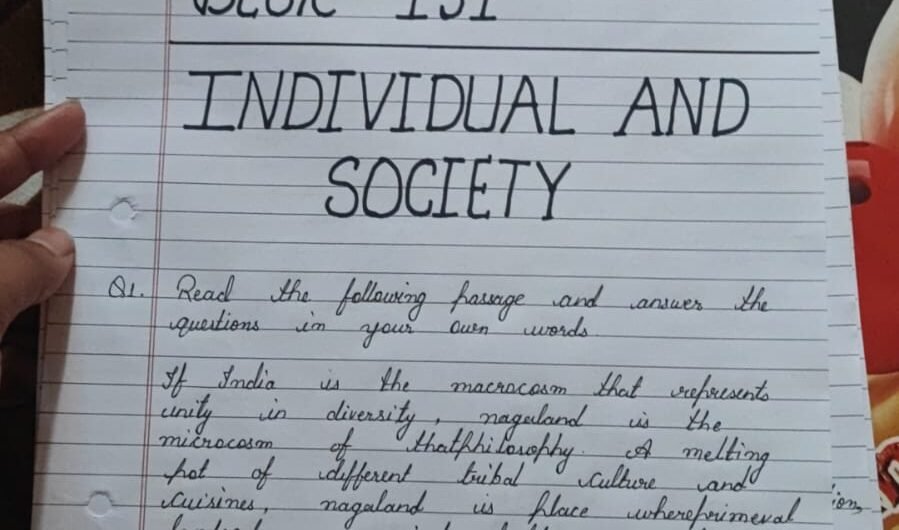 INDIVIDUAL AND
SOCIETY
Q1. Read the following passage and answer the
questions in your own words.
If India is the macrocosm that represents
unity in diversity, nagaland is the
microcosm of thatphilosophy. A melting
pot of different tribal culture and
cuisines, nagaland is place whereprimeval